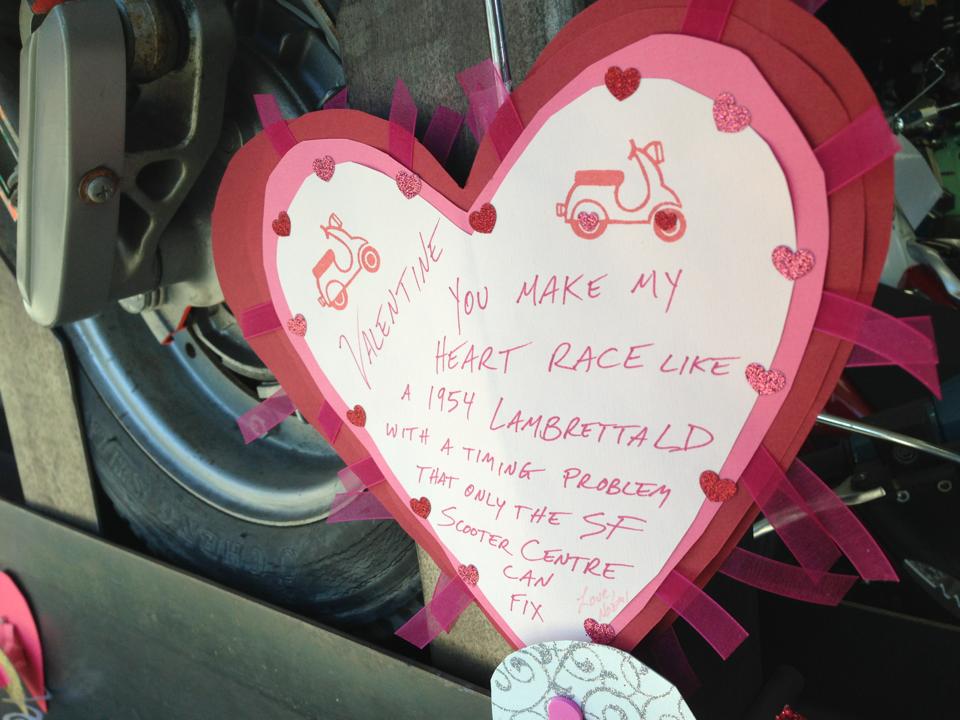 VALENTINE
YOU MAKE MY
HEART RACE LIKE
A 1954 LAMBRETTA LD
WITH A TIMING PROBLEM
THAT ONLY THE SF
SCOOTER CENTRE
CAN
FIX
Love,